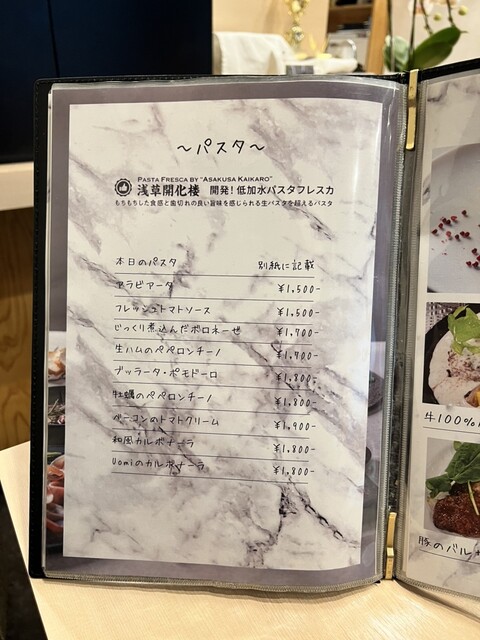 ～パスタ～
PASTA FRESCA BY "ASAKUSA KAIKARO"
浅草開化楼 開発！低加水パスタフレスカ
もちもちした食感と歯切れの良い旨味を感じられる生パスタを超えるパスタ
本日のパスタ 別紙に記載
アラビアータ ¥1,500-
フレッシュトマトソース ¥1,500-
じっくり煮込んだボロネーゼ ¥1,700-
生ハムのペペロンチーノ ¥1,700-
ブッラータ・ポモドーロ ¥1,800-
牡蠣のペペロンチーノ ¥1,800-
ベーコンのトマトクリーム ¥1,900-
和風カルボナーラ ¥1,800-
Uomiのカルボナーラ ¥1,800-
牛100%
豚のバル